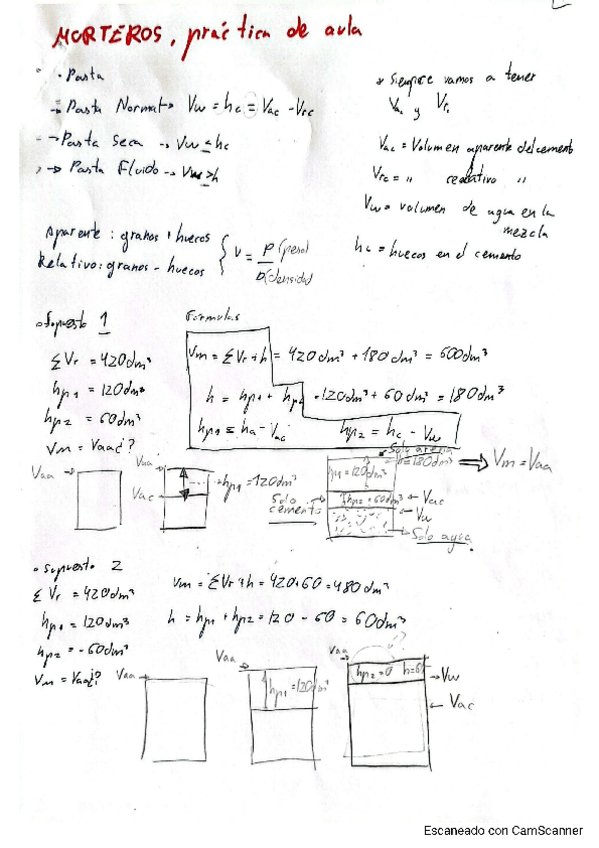 MORTEROS, práctica de aula
· Pasta
→ Pasta Normal → Vw = hc = Vac - Vrc
→ Pasta seca → Vw ≤ hc
→ Pasta Fluido → Vw > h
* Siempre vamos a tener
Vac y Vrc
Vac = Volumen aparente del cemento
Vrc = " relativo "
Vw = volumen de agua en la
mezcla
hc = huecos en el cemento
Aparente: granos + huecos
Relativo: granos - huecos
V = P (peso)
D (densidad)
Supuesto 1
ΣVr = 420dm³
hp1 = 120dm³
hp2 = 60dm³
Vm = Vaa¿?
Formulas
Vm = ΣVr + h = 420dm³ + 180dm³ = 600dm³
h = hp1 + hp2 = 120dm³ + 60dm³ = 180dm³
hp1 = ha - Vac
hp2 = hc - Vw
Vaa
Vaa
Vac
hp1 = 120dm³
Solo arena
hp1 = 120dm³
h = 180dm³
⇒ Vm = Vaa
Solo
cemento
hp2 = 60dm³
Vac
Vw
Solo agua
· Supuesto 2
ΣVr = 420dm³
hp1 = 120dm³
hp2 = -60dm³
Vm = Vaa¿?
Vm = ΣVr + h = 420 + 60 = 480dm³
h = hp1 + hp2 = 120 - 60 = 60dm³
Vaa
Vaa
hp1 = 120dm³
Vaa
hp2 = 0
Vw
Vac
Escaneado con CamScanner